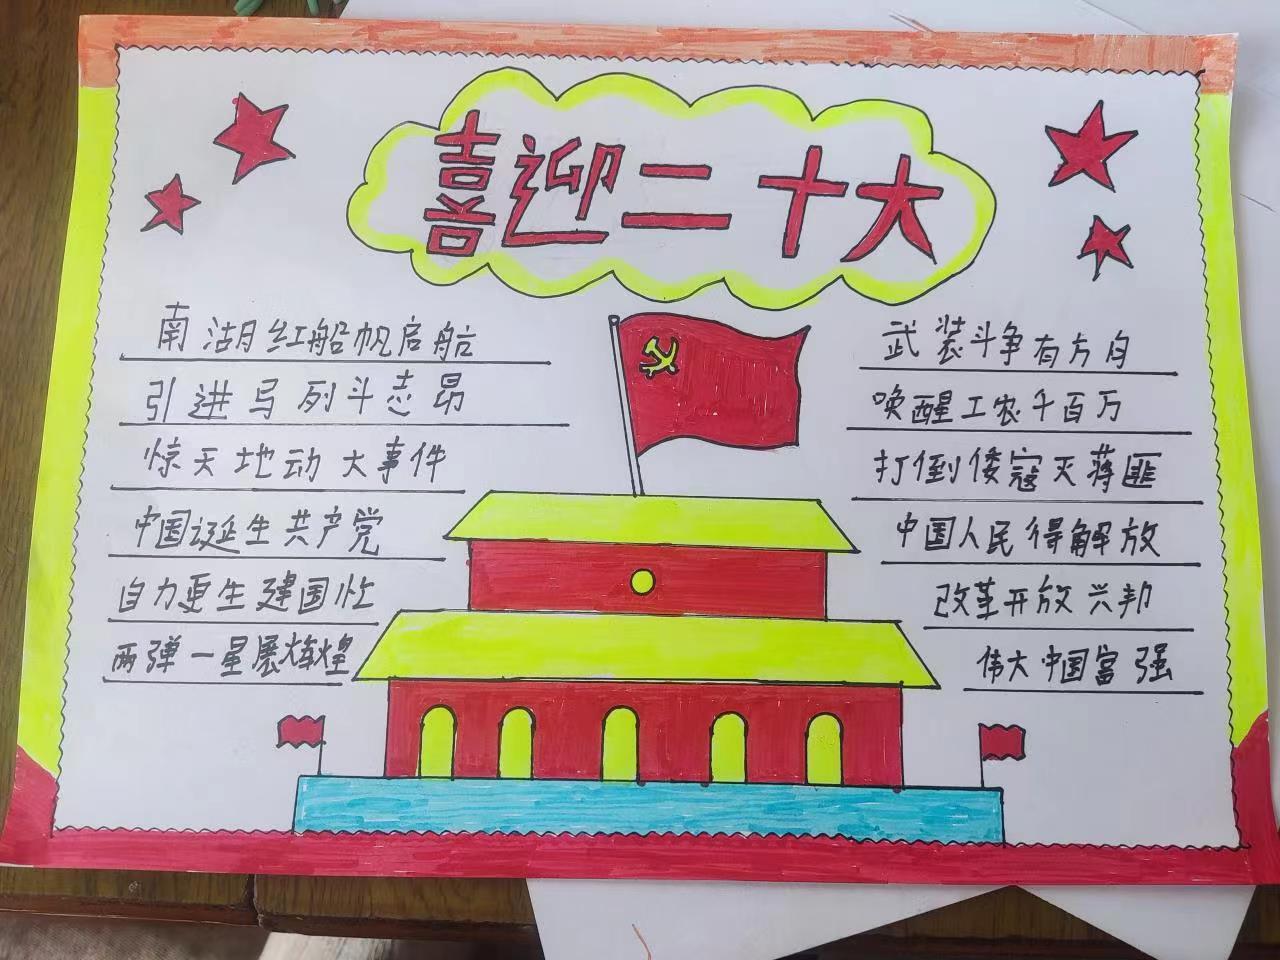 喜迎二十大
南湖红船帆启航
引进马列斗志昂
惊天地动大事件
中国诞生共产党
自力更生建国忙
两弹一星展辉煌
武装斗争有方向
唤醒工农千百万
打倒倭寇灭蒋匪
中国人民得解放
改革开放兴邦
伟大中国富强